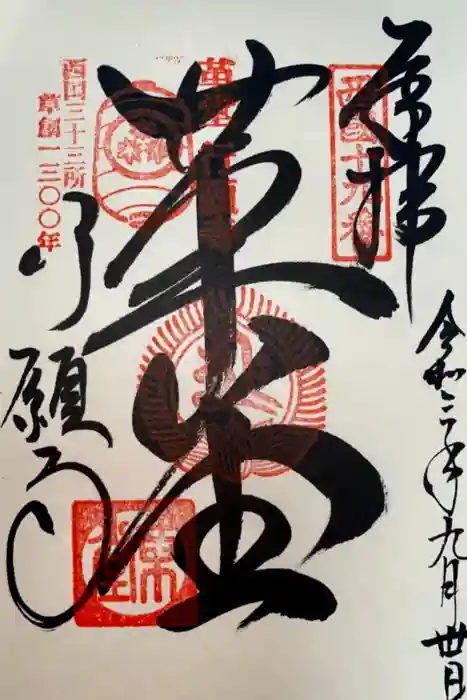 奉拝
令和三年九月丗日
西国十九番
革堂
西国三十三所
草創一三〇〇年
行願寺
革堂